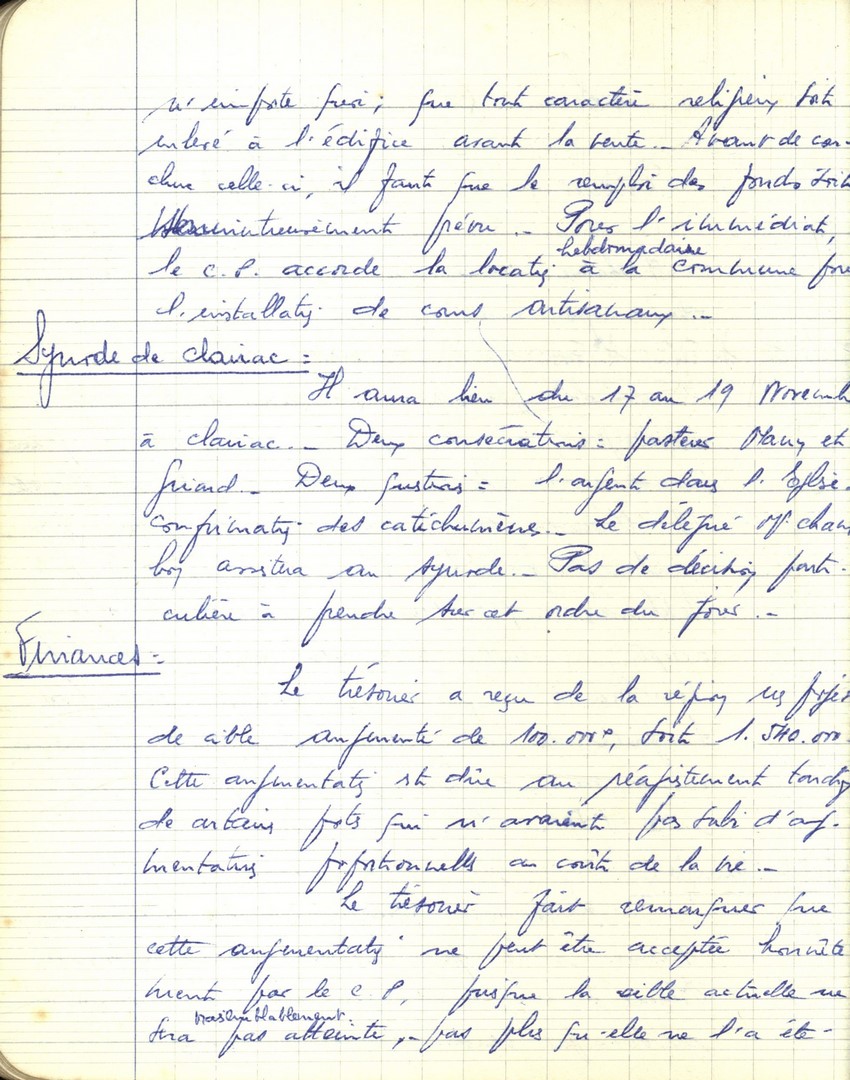 n'importe quoi; que tout caractère religieux soit
enlevé à l'édifice avant la vente._ Avant de con-
clure celle-ci, il faut que le remploi des fonds soit
minutieusement prévu._ Pour l'immédiat,
hebdomadaire
le C.P. accorde la locatiᵒ à la commune pour
l'installatiᵒ de cours artisanaux._
Synode de Clairac =
Il aura lieu du 17 au 19 Novemb
à Clairac._ Deux consécrations = pasteurs et
Deux questions = l'argent dans l'Eglise.
Confirmatiᵒ des catéchumènes._ Le délégué Mʳ Cham
boᵒ assistera au synode._ Pas de décisiᵒ parti-
culière à prendre sur cet ordre du jour._
Finances =
Le trésorier a reçu de la régioᵒ un projet
de cible augmenté de 100.000F, soit 1.540.000
Cette augmentatiᵒ est dûe au réajustement
de certains postes qui n'avaient pas subi d'aug-
mentations proportionnelles au coût de la vie._
Le trésorier fait remarquer que
cette augmentatiᵒ ne peut être acceptée honnête
ment par le C.P, puisque la cible actuelle ne
vraisemblablement
sera pas atteinte,_ pas plus qu'elle ne l'a été-